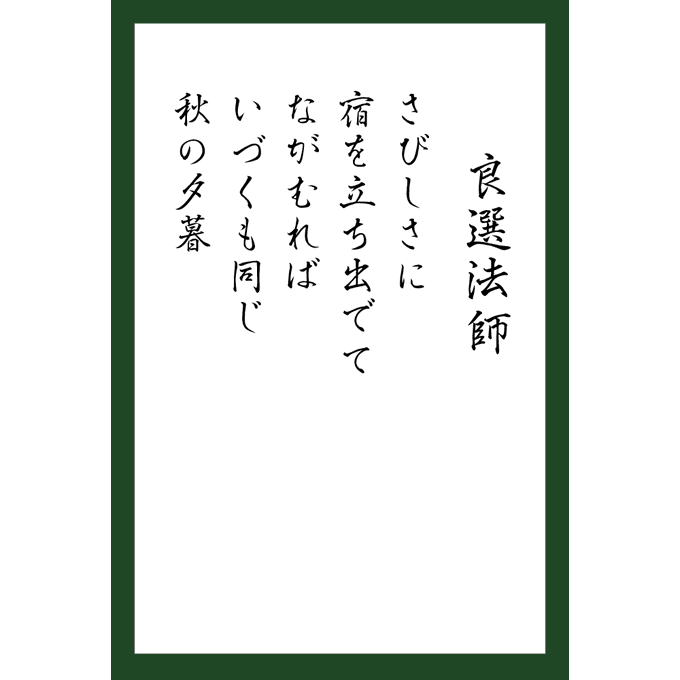 良選法師
さびしさに
宿を立ち出でて
ながむれば
いづくも同じ
秋の夕暮